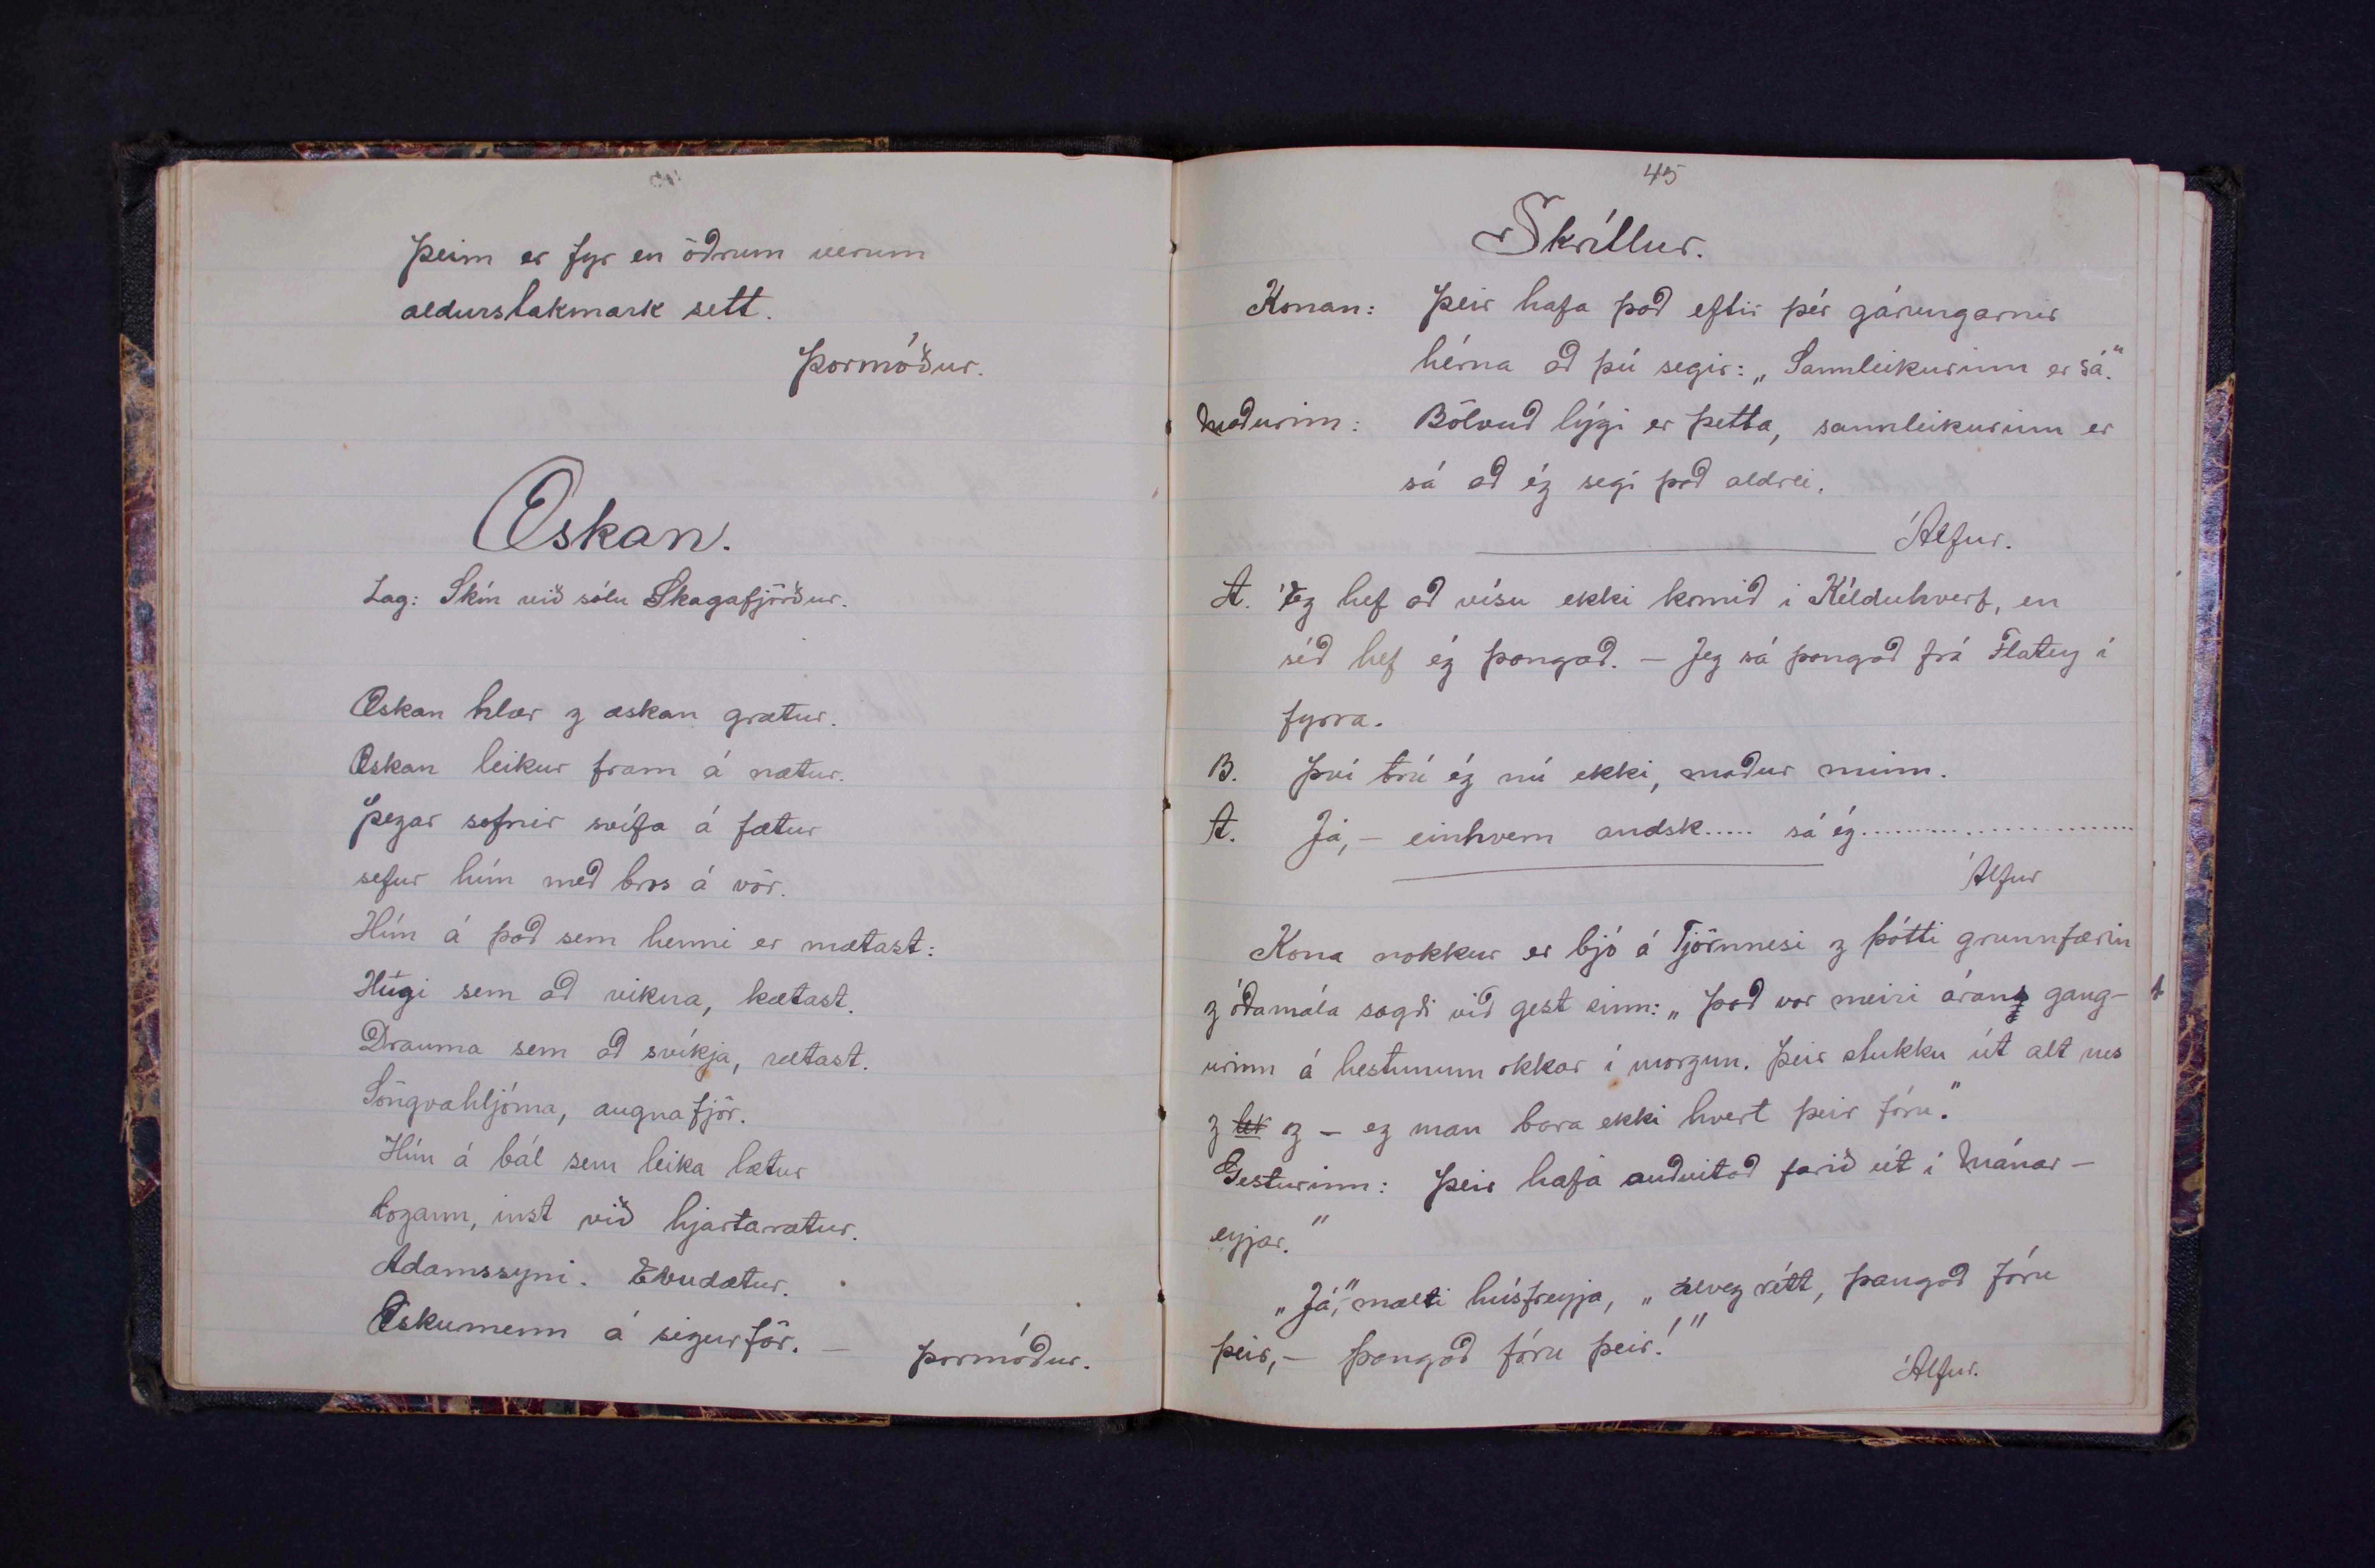 Þeim er fyr en öðrum verum
aldurstakmark sett.
Þormóður.
Æskan.
Lag: Skín við sólu Skagafjörður.
Æskan hlær z æskan grætur.
Æskan leikur fram á nætur.
Þegar sofnir svífa á fætur
sefur hún með bros á vör.
Hún á það sem henni er mætast:
Hugi sem að vikna, kætast.
Drauma sem að svíkja, rætast.
Söngvahljóma, augnafjör.
Hún á bál sem leika lætur
logann, inst við hjartarætur.
Adamssyni. Evudætur.
Æskumenn á sigurför. —
Þormóður.
45
Skrítlur.
Konan: Þeir hafa það eftir þér gárungarnir
hérna að þú segir: „Sannleikurinn er sá."
Maðurinn: Bölvuð lýgi er þetta, sannleikurinn er
sá að ég segi það aldrei.
Álfur.
A. Ég hef að vísu ekki komið í Kelduhverf, en
séð hef ég þangað. — Jeg sá þangað frá Flatey í
fyrra.
B. Því trú ég nú ekki, maður minn.
A. Já, — einhvern andsk..... sá ég..........................
Álfur
Kona nokkur er bjó á Tjörnnesi z þótti grunnfærin
z óðamála sagði við gest sinn: „Það var meiri árans gang-
urinn á hestunum okkar í morgun. Þeir stukku út alt nes
z z — eg man bara ekki hvert þeir fóru."
Gesturinn: Þeir hafa auðvitað farið út í Mánar-
eyjar."
„Já," mælti húsfreyja, „alveg rétt, þangað fóru
þeir, — þangað fóru þeir!"
Álfur.